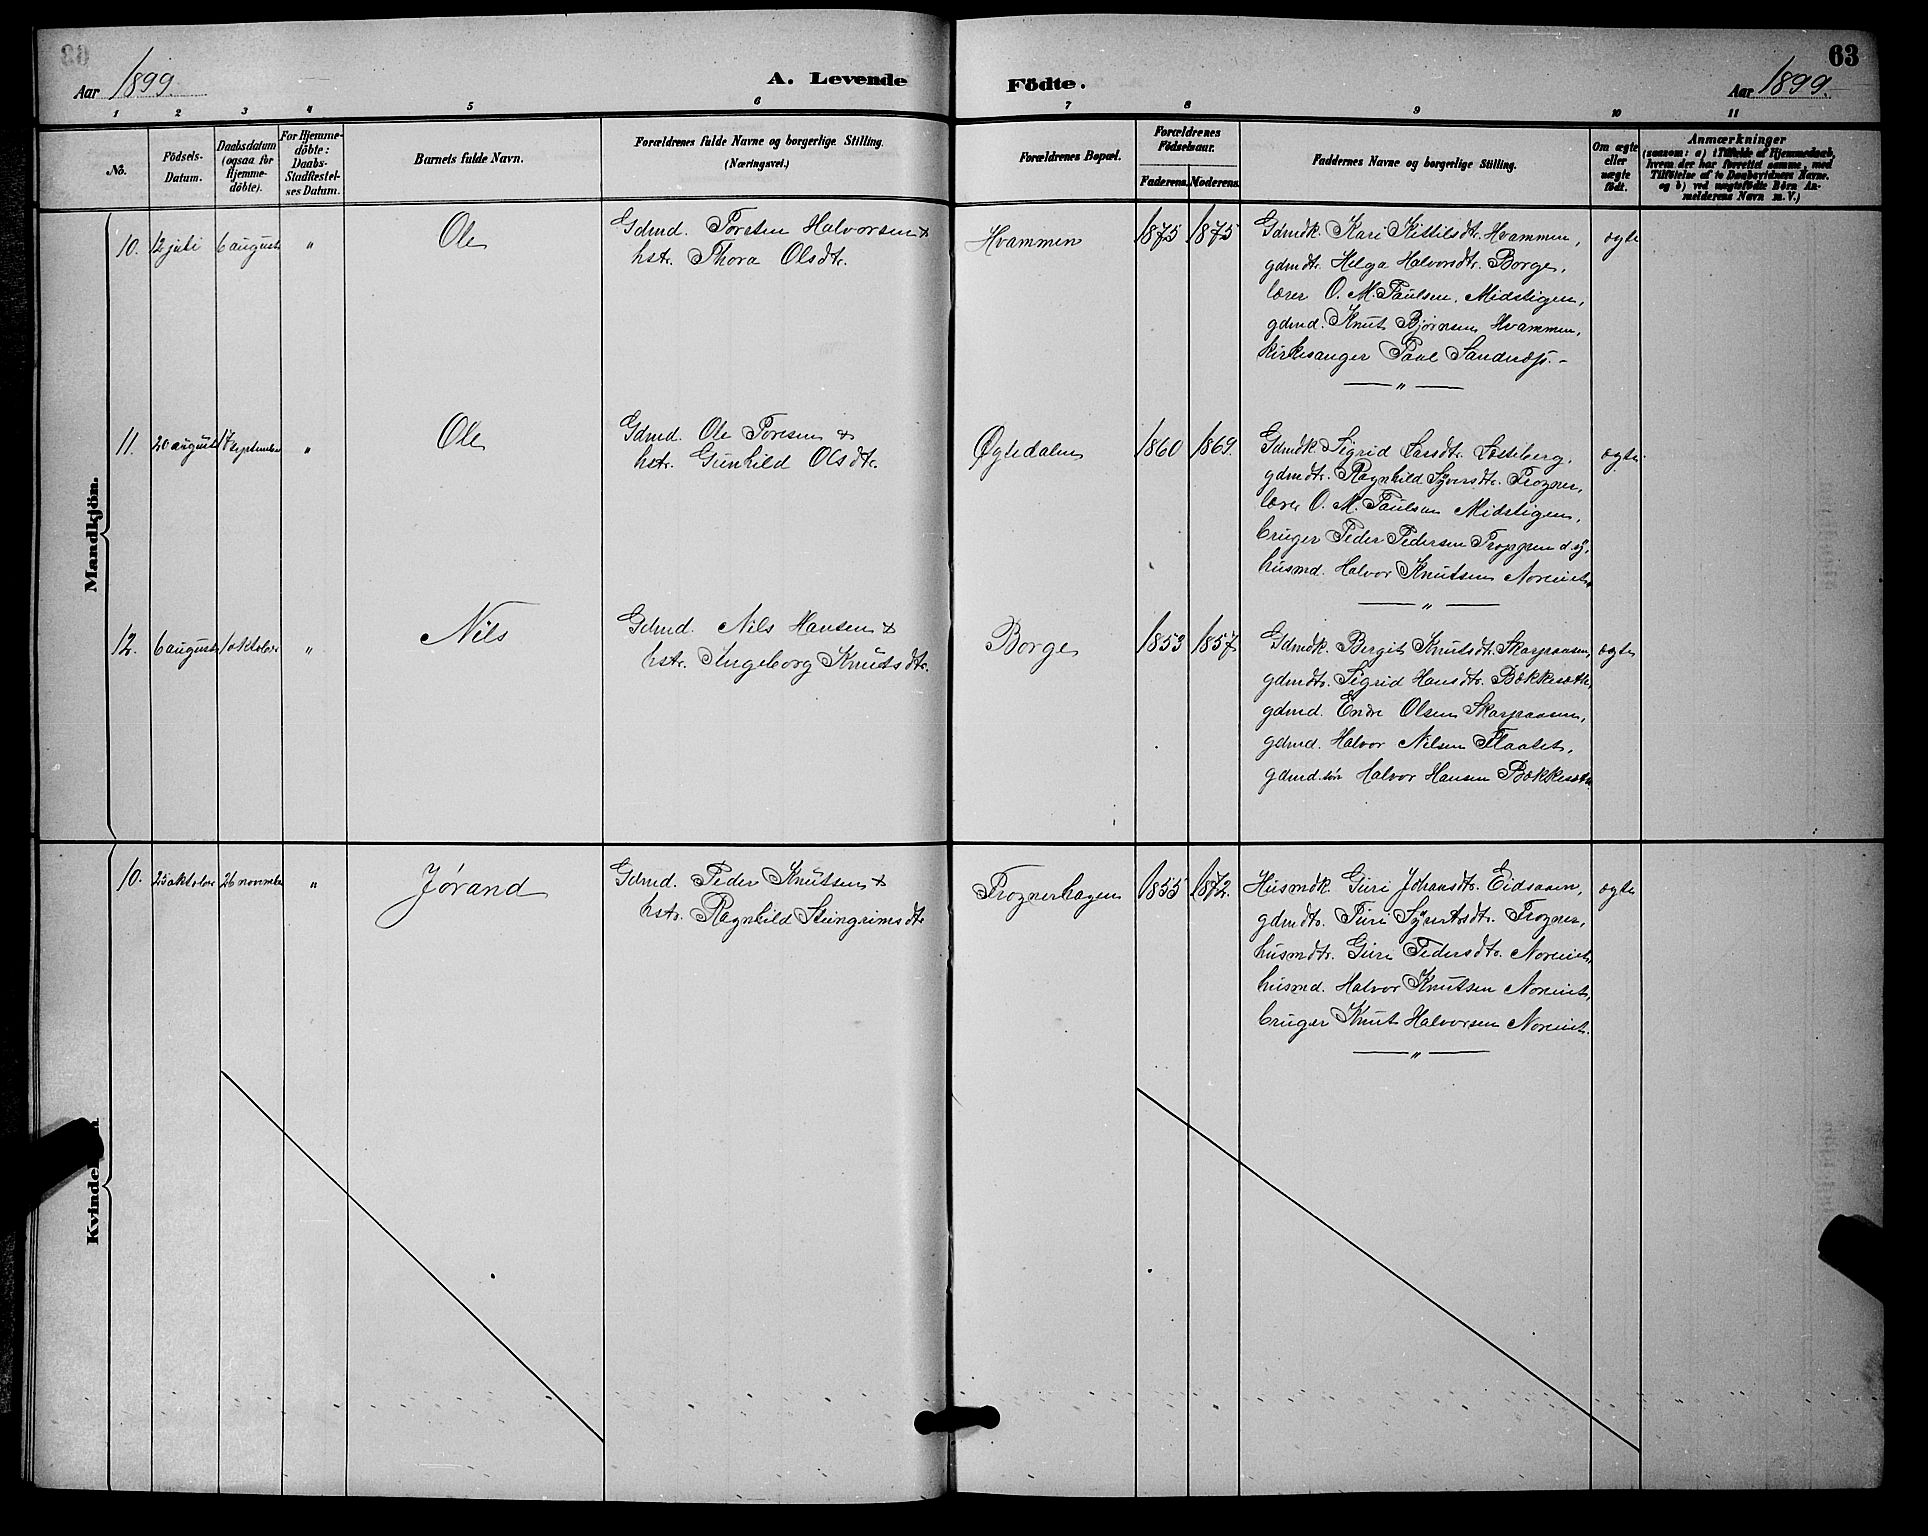 63
Aar 1899.
A. Levende Födte.
Aar 1899.
1 2 3 4 5 6 7 8 9 10 11
No.
Födsels-Datum.
Daabsdatum (ogsaa for Hjemme-döbte).
For Hjemme-döbte: Daabs-Stadfæstel-ses Datum.
Barnets fulde Navn.
Forældrenes fulde Navne og borgerlige Stilling.
(Næringsvei.)
Forældrenes Bopæl.
Forældrenes Födselsaar.
Faderens. Moderens.
Faddernes Navne og borgerlige Stilling.
Om ægte eller uægte födt.
Anmærkninger
(saasom: a) i Tilfælde af Hjemmedaab,
hvem der har forrettet samme, med
Tilföielse af to Daabsvidners Navne.
og b) ved uægtefödte Börn An-
melderens Navn m. V.)
Mandkjön.
10. 12 juli 6 august " Ole
Gdmd. Torsten Halvorsen &
hstr. Thora Olsdtr.
Hvammen 1875 1875
Gdmdk. Kari Kittilsdtr. Hvammen,
gdmdtr. Helga Halvorsdtr. Borge,
lærer O. M. Paulsen, Midstigen,
gdmd. Knut Bjørnsen Hvammen,
kirkesanger Paul Sandnæs. -
— " —
ægte
11. 20 august 17 september " Ole
Gdmd. Ole Toresen &
hstr. Gunhild Olsdtr.
Øgledalen 1860 1869.
Gdmdk. Sigrid Larsdtr.
gdmdtr. Ragnhild Syversdtr. Trogner,
lærer O. M. Paulsen Midstigen,
bruger Peder Pedersen d. y,
husmd. Halvor Knutsen Noreiet,
— " —
ægte
12. 6 august 1 oktober " Nils
Gdmd. Nils Hansen &
hstr. Ingeborg Knutsdtr.
Borge 1853 1857
Gdmdk. Bergit Knutsdtr. Skarpaasen,
gdmdtr. Sigrid Hansdtr. Bækkesæth,
gdmd. Endre Olsen Skarpaasen,
gdmd. Halvor Nilsen Flaatet,
gdmd.søn Halvor Hansen Bækkesæth.
ægte
Kvinde
10. 25 oktober 26 november " Jørand
Gdmd. Peder Knutsen &
hstr. Ragnhild Steingrimsdtr.
Trognerhagen 1855 1872.
Husmdk. Guri Johansdtr. Eidsaaen,
gdmdtr. Turi Syvertsdtr. Trogner,
husmdtr. Guri Pedersdtr. Noreiet,
husmd. Halvor Knutsen Noreiet,
bruger Knut Halvorsen Noreiet.
— " —
ægte